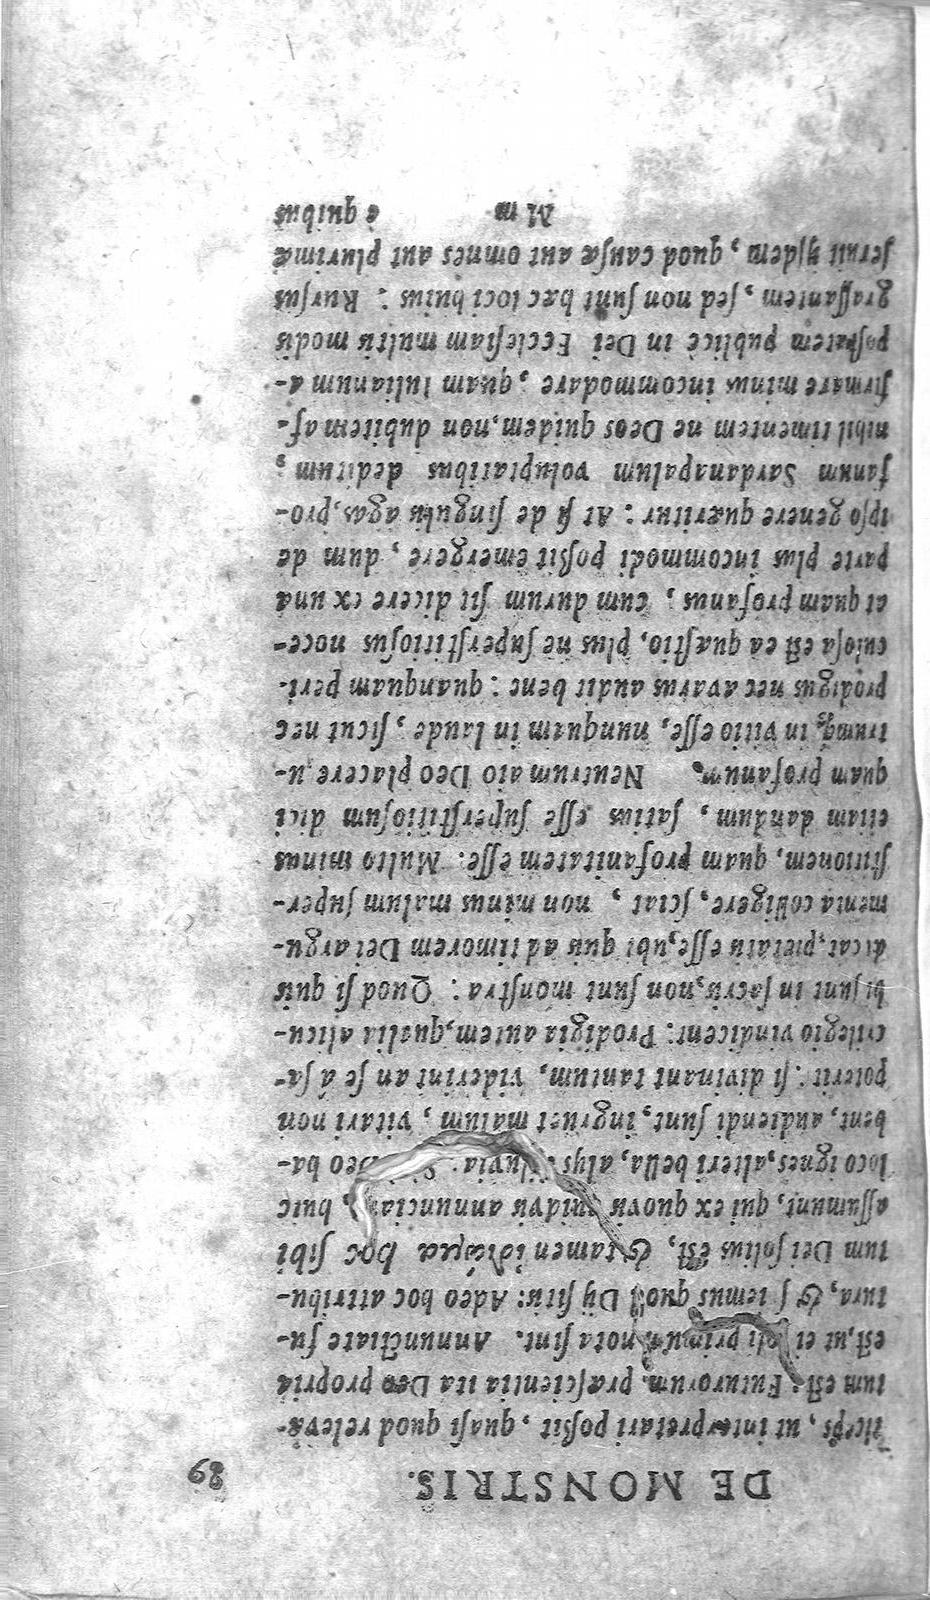 DE MONSTRIS. 89
ticeps, ut interpretari poßit, quasi quod relevā-
tum est: Futurorum præscientia ita Deo propria
est, ut ei soli primùm nota sint. Annunctiate fu-
tura, & sciemus quod Dij sitis: Adeo hoc attribu-
tum Dei solius est, & tamen ἰδίωμα hoc sibi
assumunt, qui ex quovis quidvis annunciant, huic
loco ignes, alteri bella, alijs diluvia: Deo ha-
bent, audiendi sunt, ingruet malum, vitari non
poterit: si divinant tantum, viderint an se á sa-
crilegio vindicent: Prodigia autem, qualia alicu-
bi sunt in sacris, non sunt monstra: Quod si quis
dicat, pietatis esse, ubi quis ad timorem Dei argu-
menta colligere, sciat, non minus malum super-
stitionem, quam profanitatem esse: Multo minus
etiam dandum, satius esse superstitiosum dici
quam profanum. Neutrum aio Deo placere u-
trumq; in vitio esse, nunquam in laude, sicut nec
prodigus nec avarus audit bene: quanquam peri-
culosa est ea quæstio, plus ne superstitiosus noce-
at quam profanus, cum durum sit dicere ex una
parte plus incommodi poßit emergere, dum de
ipso genere quæritur: At si de singulis agas, pro-
fanum Sardanapalum voluptatibus deditum,
nihil timentem ne Deos quidem, non dubitem af-
firmare minus incommodare, quam Iulianum a-
postatem publicè in Dei Ecclesiam multis modis
grassantem, sed non sunt hæc loci huius: Rursus
feruit ijsdem, quod causæ aut omnes aut plurimæ
M m è quibus